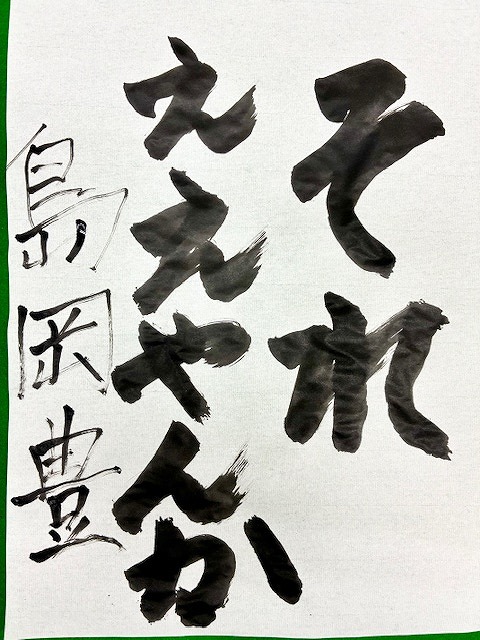 それ
ええやんか
島岡豊